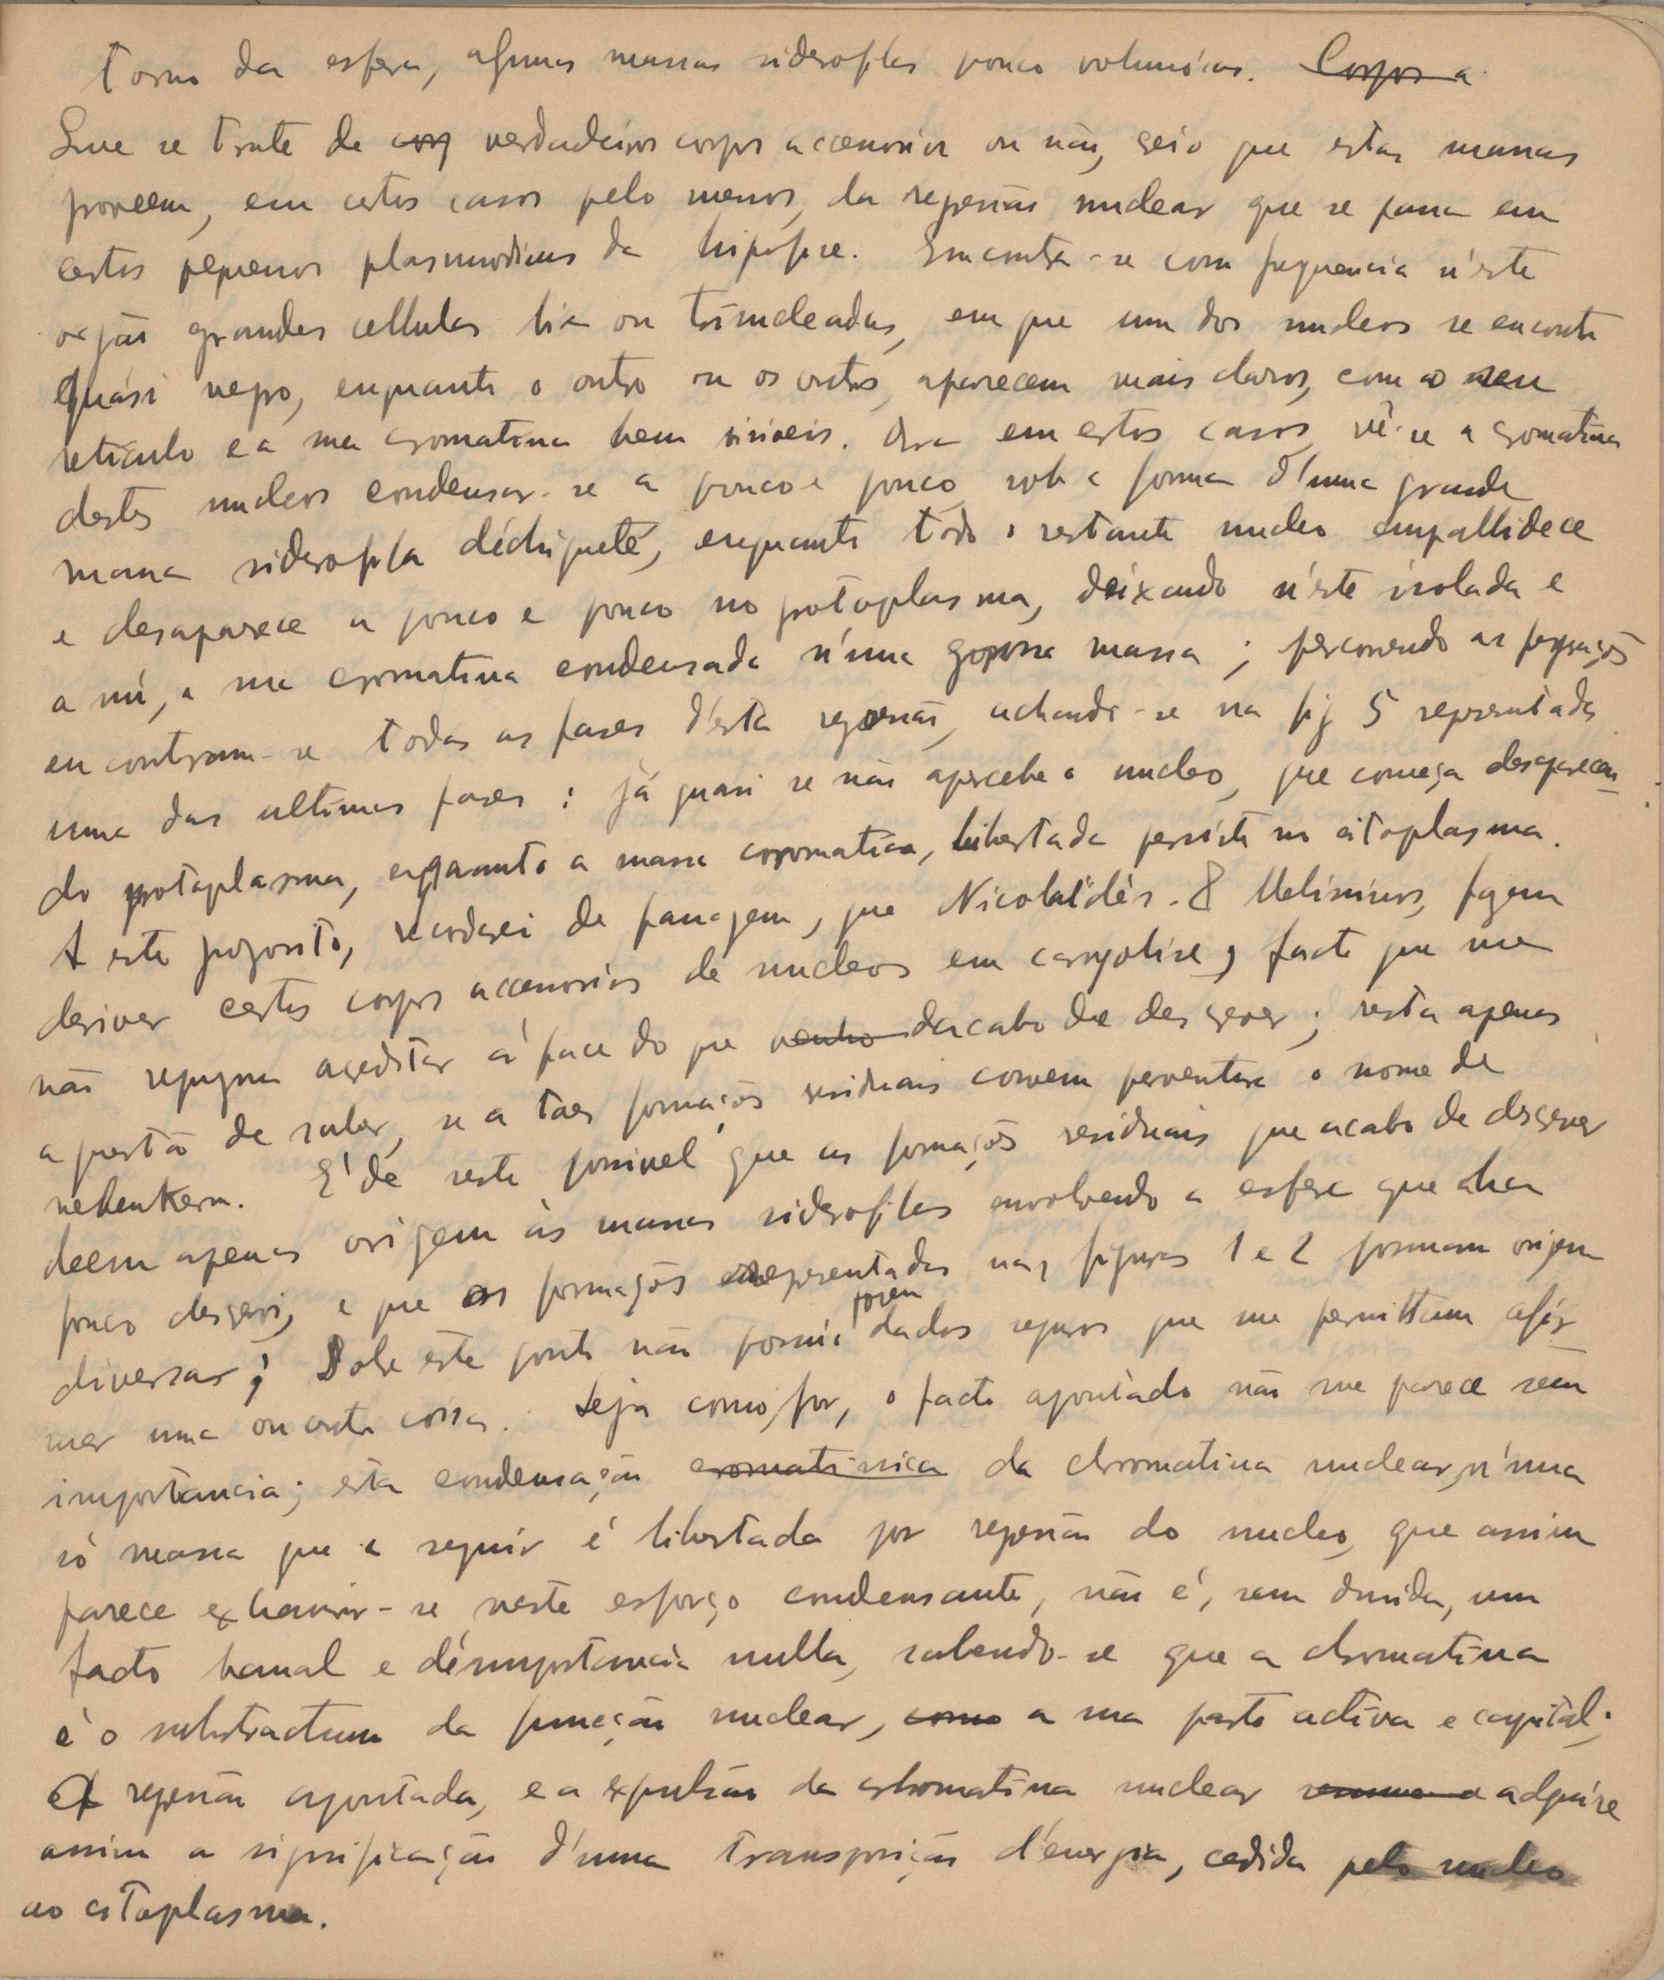 torno da esfera, algumas massas siderofilas pouco volumosas. Corpos a
Que se trate de corp verdadeiros corpos accessorios ou não, creio que estas massas
proveem, em certos casos pelo menos, da regressão nuclear que se passa em
certos pequenos plasmodios da hipofise. Encontra-se com frequencia n'este
orgão grandes cellulas bi- ou trinucleadas, em que um dos nucleos se encontra
quási negro, enquanto o outro ou os outros, aparecem mais claros, com o seu
reticulo e a sua cromatina bem visiveis. Ora em estes casos vê-se a cromatina
destes nucleos condensar-se a pouco e pouco sob a forma d'uma grande
massa siderofila déchiqueté, enquanto todo o restante nucleo empallidece
e desaparece a pouco e pouco no protoplasma, deixando n'este isolada e
a nú, a sua cromatina condensada n'uma grossa massa; percorrendo as preparações
encontram-se todas as fases d'esta regressão, achando-se na fig 5 representada
uma das ultimas fases: já quasi se não apercebe o nucleo, que começa desaparecen-
do protoplasma, enquanto a massa cromatica, libertada persiste no citoplasma.
A este proposito, recordarei de passagem, que Nicolaïdès & Melissinos, fazem
derivar certos corpos accessorios de nucleos em caryolise, facto que me
não repugna acreditar á face do que venho dacabo de descrever; resta apenas
a questão de saber, se a taes formações residuais convem porventura o nome de
nebenkern. É de resto possivel que as formações residuais que acabo de descrever
deem apenas origem ás massas siderofilas envolvendo a esfera que ha
pouco descrevi, e que as formações representadas nas figuras 1 e 2 possuam origem
diversas; Sobre este ponto não possuo porem dados seguros que me permittam afir-
mar uma ou outra coisa. Seja como fôr, o facto apontado não me parece sem
importancia; esta condensação cromatinica da chromatina nuclear, n'uma
só massa que a seguir é libertada por regressão do nucleo, que assim
parece exhaurir-se neste esforço condensante, não é, sem duvida, um
facto banal e d'importancia nulla, sabendo-se que a chromatina
é o substractum da funcção nuclear, como a sua parte activa e capital;
A regressão apontada, e a expulsão da chromatina nuclear adquire
assim a significação d'uma transposição d'energia, cedida pelo nucleo
ao citoplasma.